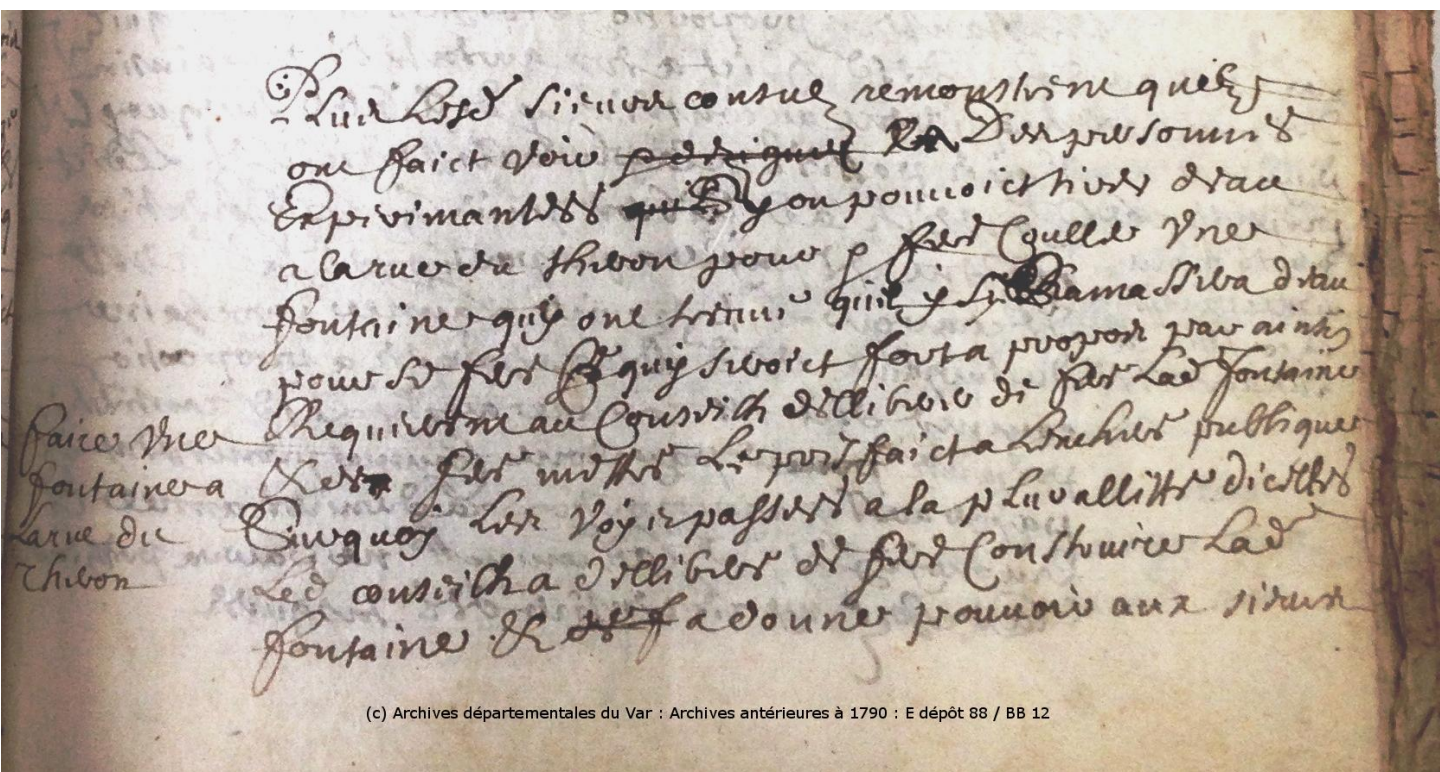 Plus lesd sieurs consulz remonstrent quilz
ont faict voir a Des personnes
Experimantees sy on pouvoict tirer deau
a la rue du thiron pour p fere Coulle Vne
fontaine quy ont treuvé quil y sy Ramassera deau
pour se fere Ce quy seroict fort a propos par ainsy
Requierent au Conseilh dellibere de fere Lad fontaine
& fere mettre Le prisfaict a Lenchere publique
Surquoy Les Voyes passees a la pluralitte dicelles
Led conseilh a dellibere de fere Construire Lad
fontaine & a donne pouvoir aux sieurs
faire Vne
fontaine a
Larue du
thiron
(c) Archives départementales du Var : Archives antérieures à 1790 : E dépôt 88 / BB 12